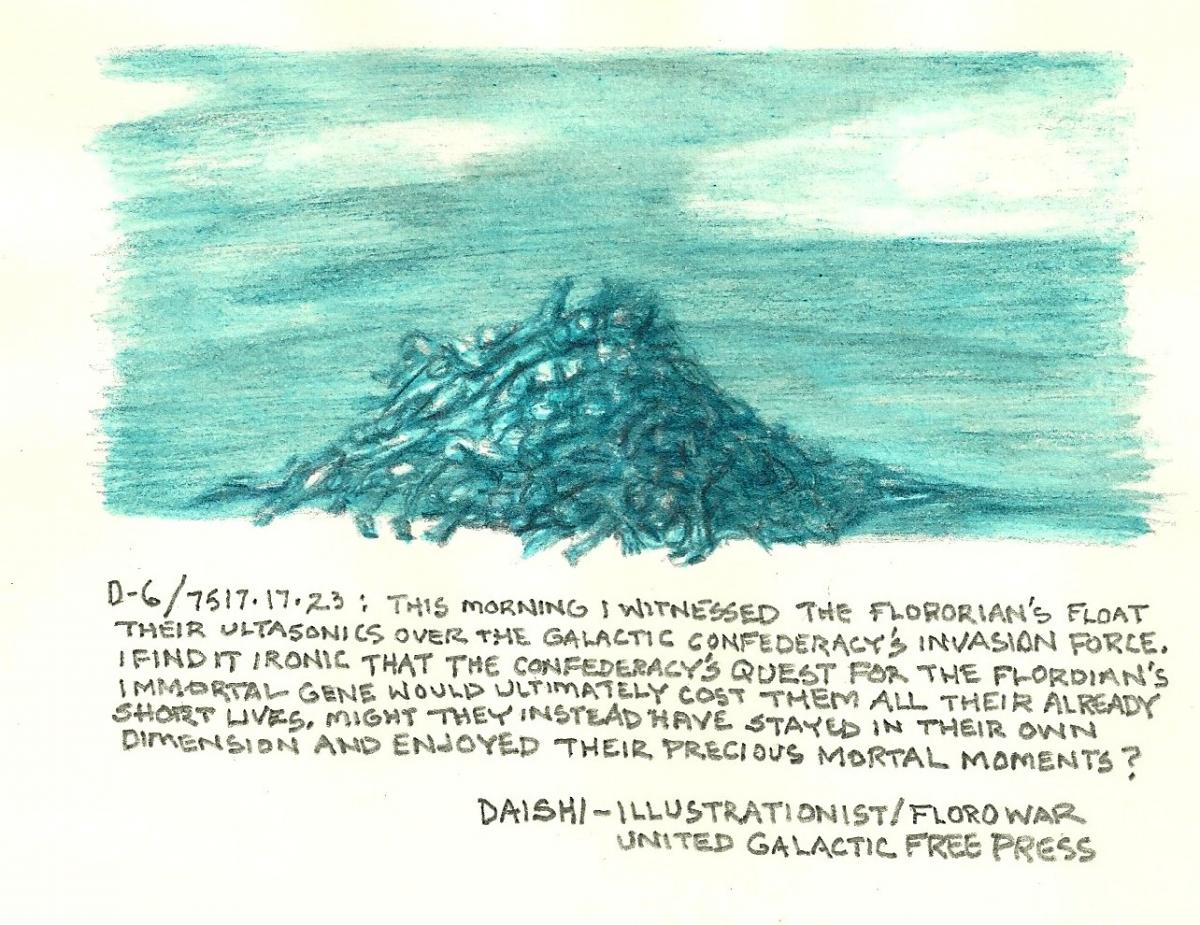 D-6/7517.17.23: THIS MORNING I WITNESSED THE FLORORIAN'S FLOAT
THEIR ULTASONICS OVER THE GALACTIC CONFEDERACY'S INVASION FORCE.
I FIND IT IRONIC THAT THE CONFEDERACY'S QUEST FOR THE FLORDIAN'S
IMMORTAL GENE WOULD ULTIMATELY COST THEM ALL THEIR ALREADY
SHORT LIVES. MIGHT THEY INSTEAD HAVE STAYED IN THEIR OWN
DIMENSION AND ENJOYED THEIR PRECIOUS MORTAL MOMENTS?
DAISHI-ILLUSTRATIONIST/FLOROWAR
UNITED GALACTIC FREE PRESS